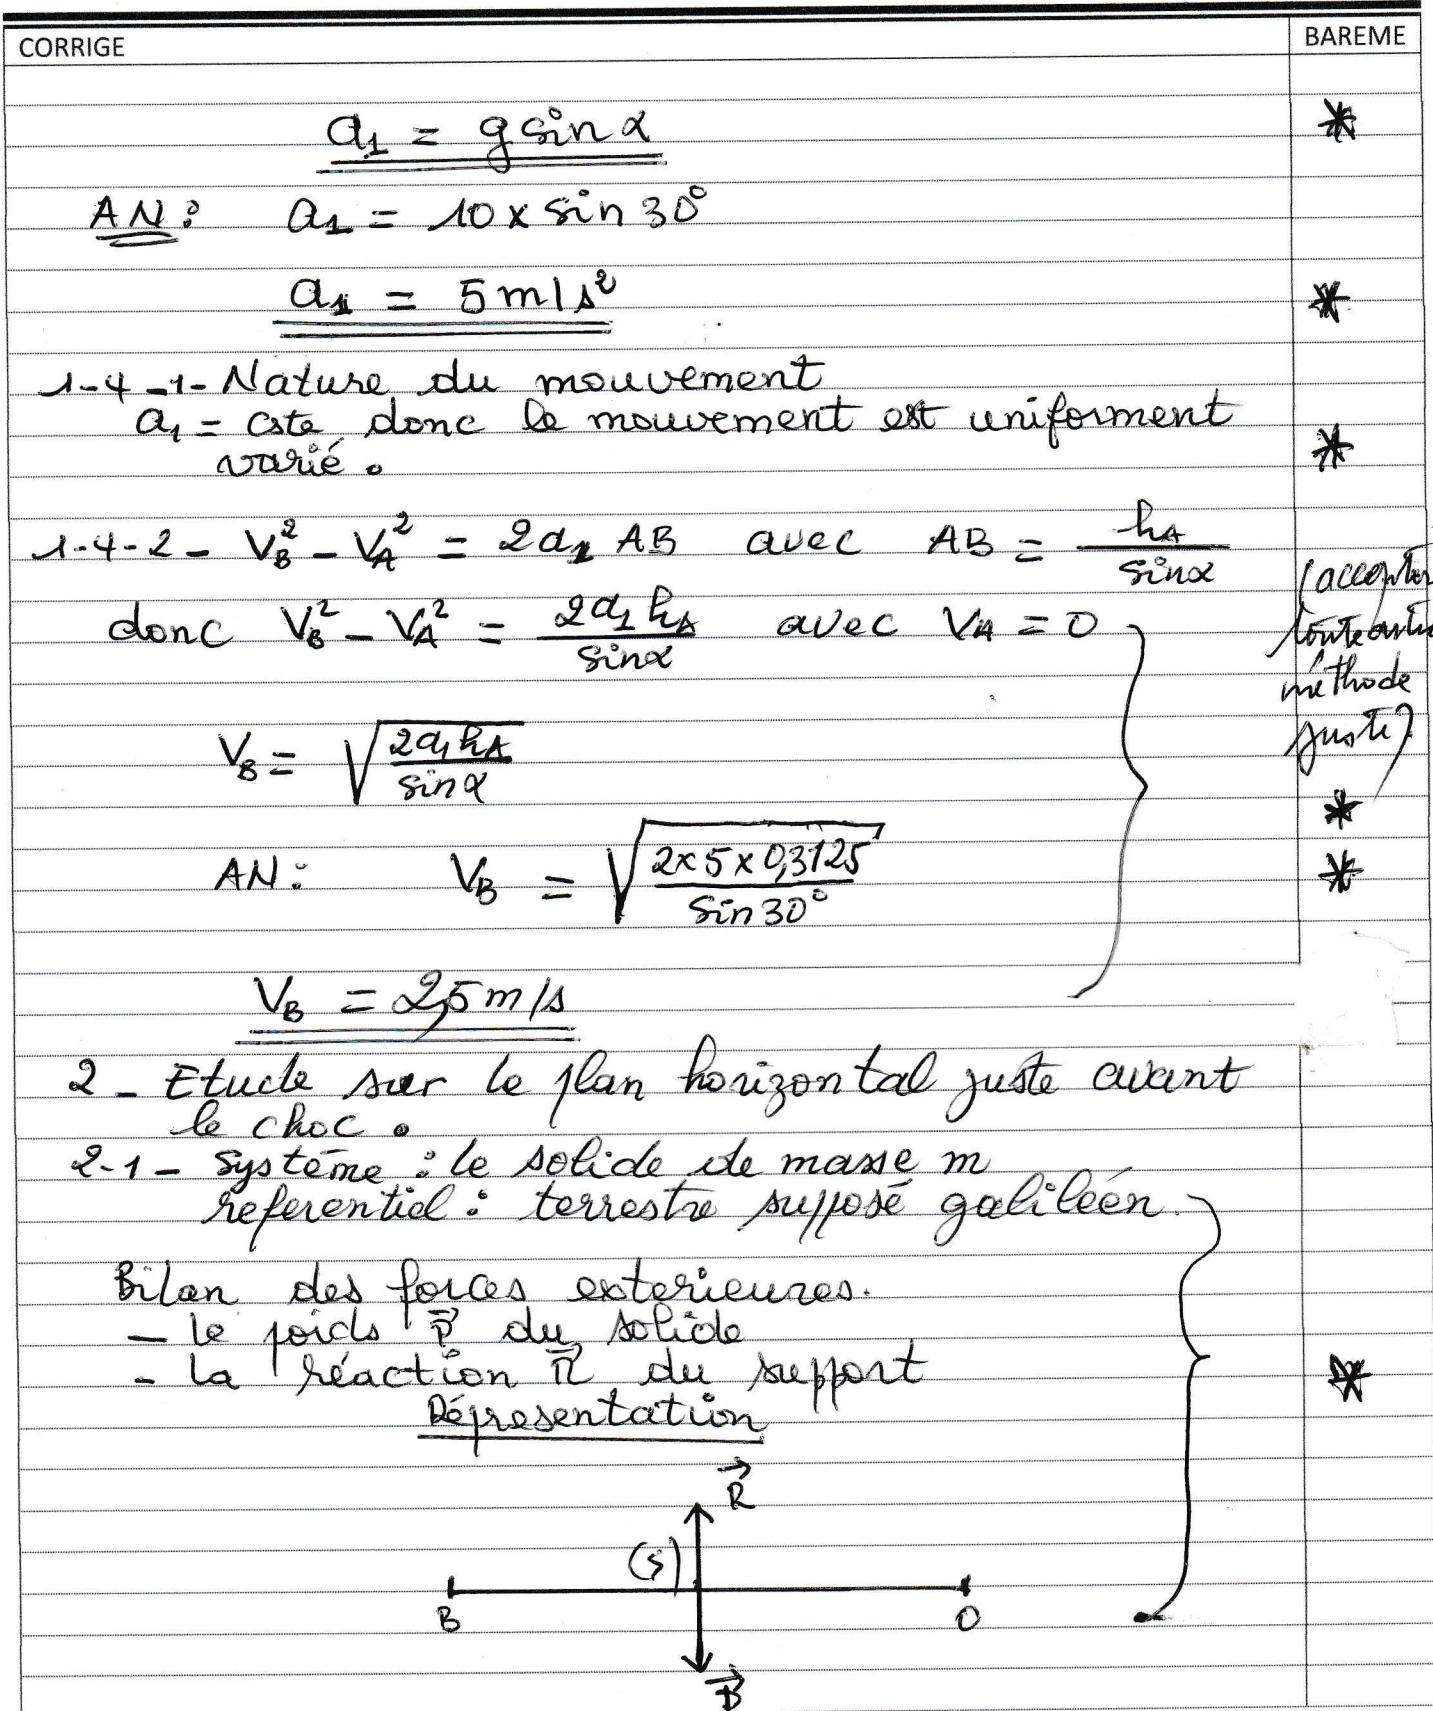 CORRIGE
BAREME
a₁ = g sin α
*
AN : a₁ = 10 x sin 30°
a₁ = 5 m/s²
*
1-4-1- Nature du mouvement
a₁ = cste donc le mouvement est uniforment
varié.
*
1-4-2- V_B² - V_A² = 2a₁ AB avec AB = h_A / sin α
donc V_B² - V_A² = 2a₁ h_A / sin α avec V_A = 0
(accepter
toute autre
méthode
juste)
V_B = √(2a₁ h_A / sin α)
*
AN : V_B = √(2 x 5 x 0,3125 / sin 30°)
*
V_B = 2,5 m/s
2 - Etude sur le plan horizontal juste avant
le choc.
2-1 - Système : le solide de masse m
referentiel : terrestre supposé galiléen.
Bilan des forces exterieures.
- le poids P⃗ du solide
- La réaction R⃗ du support
*
Répresentation
R⃗
(S)
B O
P⃗